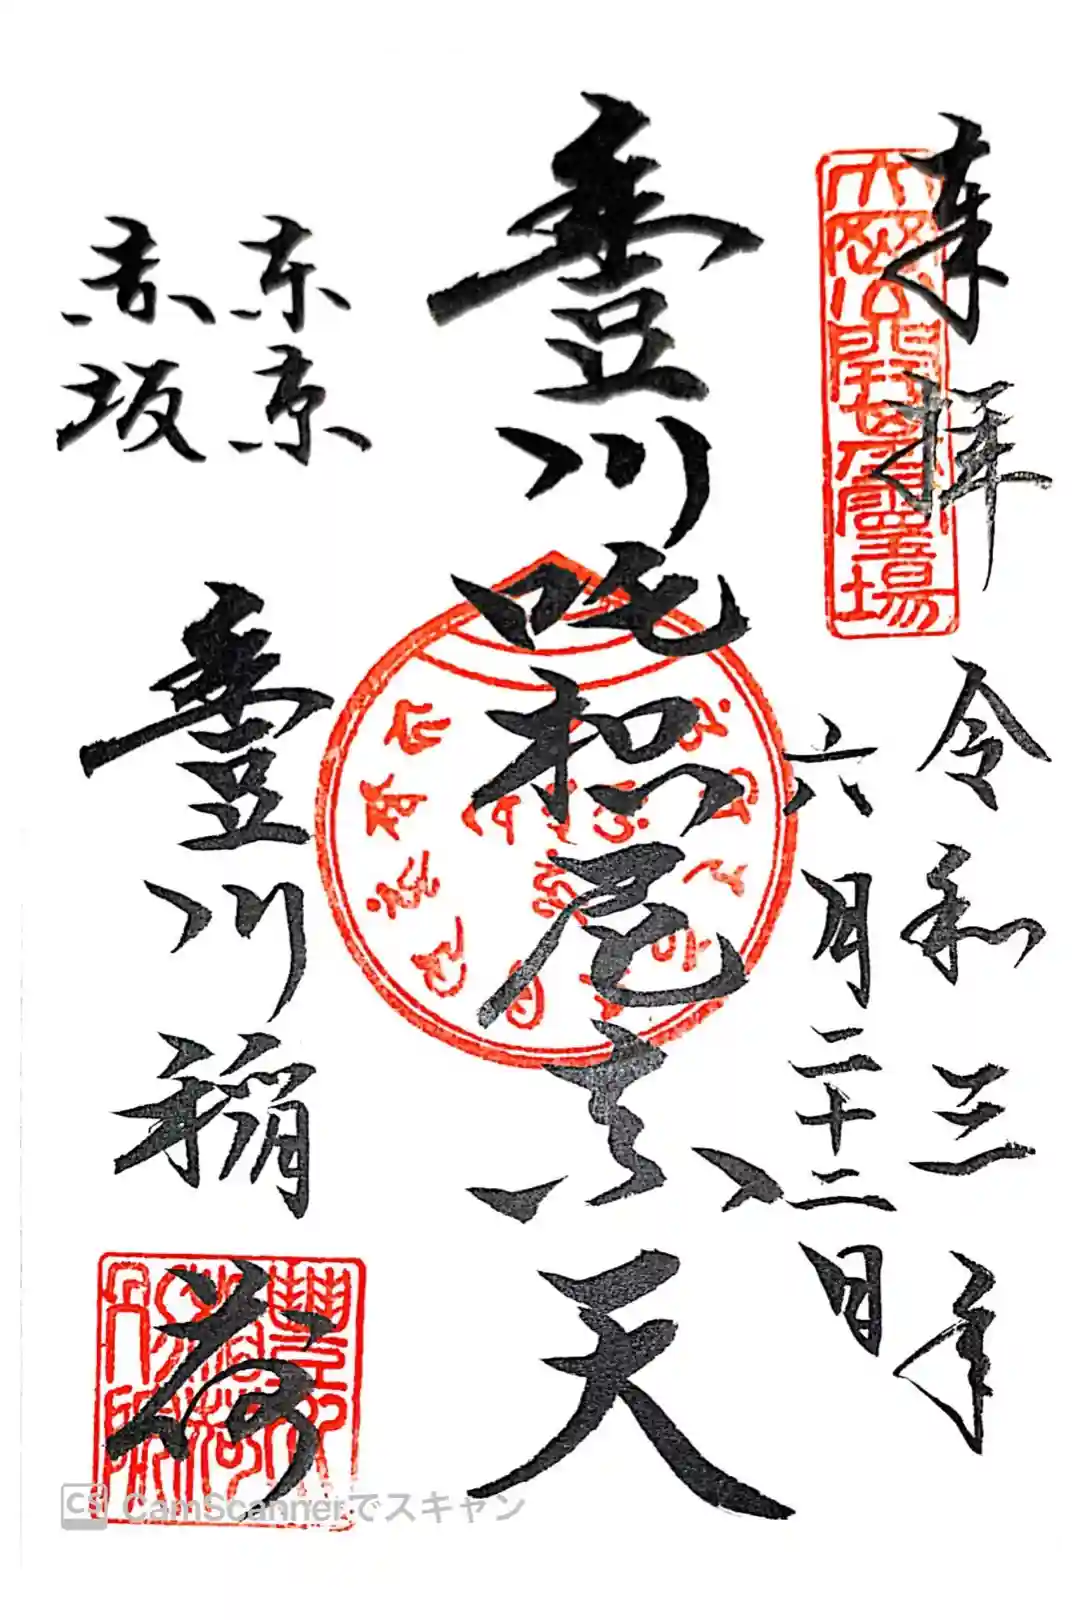 奉拝
令和三年
六月二十二日
大岡公御尊信霊場
豊川吒枳尼真天
東京
赤坂
豊川稲荷
CamScannerでスキャン